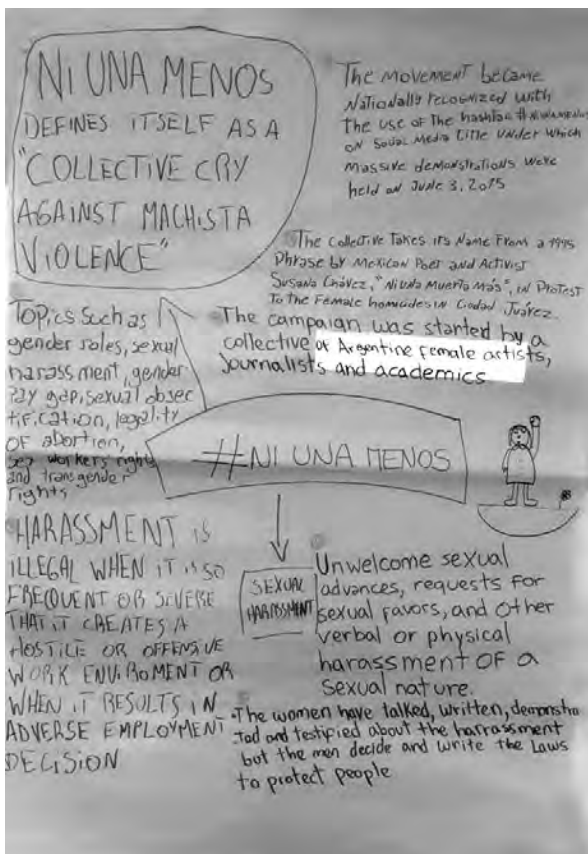 NI UNA MENOS
DEFINES ITSELF AS A
"COLLECTIVE CRY
AGAINST MACHISTA
VIOLENCE"
The MOVEMENT became
Nationally recognized with
the use of the hashtag #NIUNAMENOS
on Social Media title under which
massive demonstrations were
held on JUNE 3, 2015
The Collective Takes its Name From a 1995
Phrase by Mexican Poet and Activist
Susana Chávez, "Ni Una Muerta Más", in Protest
To the Female homicides in Ciudad Juárez.
The campaign was started by a
collective of Argentine female artists,
journalists and academics
Topics such as
gender roles, sexual
harassment, gender
Pay gap, sexual objec
tification, legality
OF abortion,
sex workers rights
and transgender
rights
#NI UNA MENOS
HARASSMENT is
ILLEGAL WHEN IT IS SO
FREQUENT OR SEVERE
THAT IT CREATES A
HOSTILE OR OFFENSIVE
WORK ENVIROMENT OR
WHEN IT RESULTS IN
ADVERSE EMPLOYMENT
DECISION
SEXUAL
HARASSMENT
Unwelcome sexual
advances, requests for
sexual favors, and other
verbal or physical
harassment OF a
sexual nature.
The women have talked, written, demonstra
ted and testified about the harrassment
but the men decide and write the Laws
to protect people